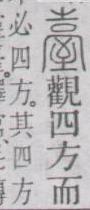 臺觀四方而
必四方。其四方